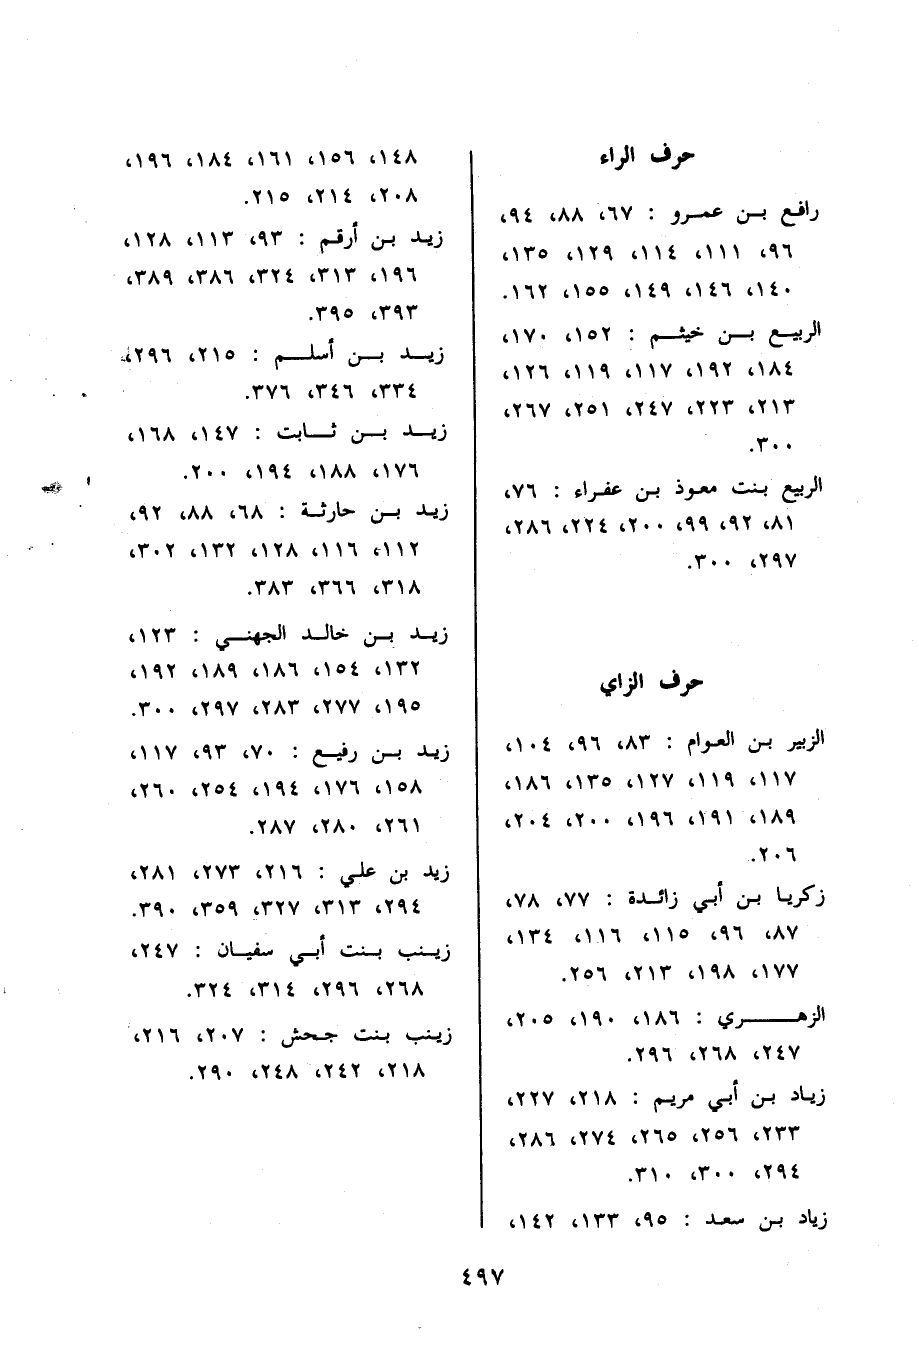 حرف الراء
رافع بن عمرو : ٦٧، ٨٨، ٩٤،
٩٦، ١١١، ١١٤، ١٢٩، ١٣٥،
١٤٠، ١٤٦، ١٤٩، ١٥٥، ١٦٢.
الربيع بن خيثم : ١٥٢، ١٧٠،
١٨٤، ١٩٢، ١١٧، ١١٩، ١٢٦،
٢١٣، ٢٢٣، ٢٤٧، ٢٥١، ٢٦٧،
٣٠٠.
الربيع بنت معوذ بن عفراء : ٧٦،
٨١، ٩٢، ٩٩، ٢٠٠، ٢٢٤، ٢٨٦،
٢٩٧، ٣٠٠.
حرف الزاي
الزبير بن العوام : ٨٣، ٩٦، ١٠٤،
١١٧، ١١٩، ١٢٧، ١٣٥، ١٨٦،
١٨٩، ١٩١، ١٩٦، ٢٠٠، ٢٠٤،
٢٠٦.
زكريا بن أبي زائدة : ٧٧، ٧٨،
٨٧، ٩٦، ١١٥، ١١٦، ١٣٤،
١٧٧، ١٩٨، ٢١٣، ٢٥٦.
الزهري : ١٨٦، ١٩٠، ٢٠٥،
٢٤٧، ٢٦٨، ٢٩٦.
زياد بن أبي مريم : ٢١٨، ٢٢٧،
٢٣٣، ٢٥٦، ٢٦٥، ٢٧٤، ٢٨٦،
٢٩٤، ٣٠٠، ٣١٠.
زياد بن سعد : ٩٥، ١٣٣، ١٤٢،
١٤٨، ١٥٦، ١٦١، ١٨٤، ١٩٦،
٢٠٨، ٢١٤، ٢١٥.
زيد بن أرقم : ٩٣، ١١٣، ١٢٨،
١٩٦، ٣١٣، ٣٢٤، ٣٨٦، ٣٨٩،
٣٩٣، ٣٩٥.
زيد بن أسلم : ٢١٥، ٢٩٦،
٣٣٤، ٣٤٦، ٣٧٦.
زيد بن ثابت : ١٤٧، ١٦٨،
١٧٦، ١٨٨، ١٩٤، ٢٠٠.
زيد بن حارثة : ٦٨، ٨٨، ٩٢،
١١٢، ١١٦، ١٢٨، ١٣٢، ٣٠٢،
٣١٨، ٣٦٦، ٣٨٣.
زيد بن خالد الجهني : ١٢٣،
١٣٢، ١٥٤، ١٨٦، ١٨٩، ١٩٢،
١٩٥، ٢٧٧، ٢٨٣، ٢٩٧، ٣٠٠.
زيد بن رفيع : ٧٠، ٩٣، ١١٧،
١٥٨، ١٧٦، ١٩٤، ٢٥٤، ٢٦٠،
٢٦١، ٢٨٠، ٢٨٧.
زيد بن علي : ٢١٦، ٢٧٣، ٢٨١،
٢٩٤، ٣١٣، ٣٢٧، ٣٥٩، ٣٩٠.
زينب بنت أبي سفيان : ٢٤٧،
٢٦٨، ٢٩٦، ٣١٤، ٣٢٤.
زينب بنت جحش : ٢٠٧، ٢١٦،
٢١٨، ٢٤٢، ٢٤٨، ٢٩٠.
٤٩٧